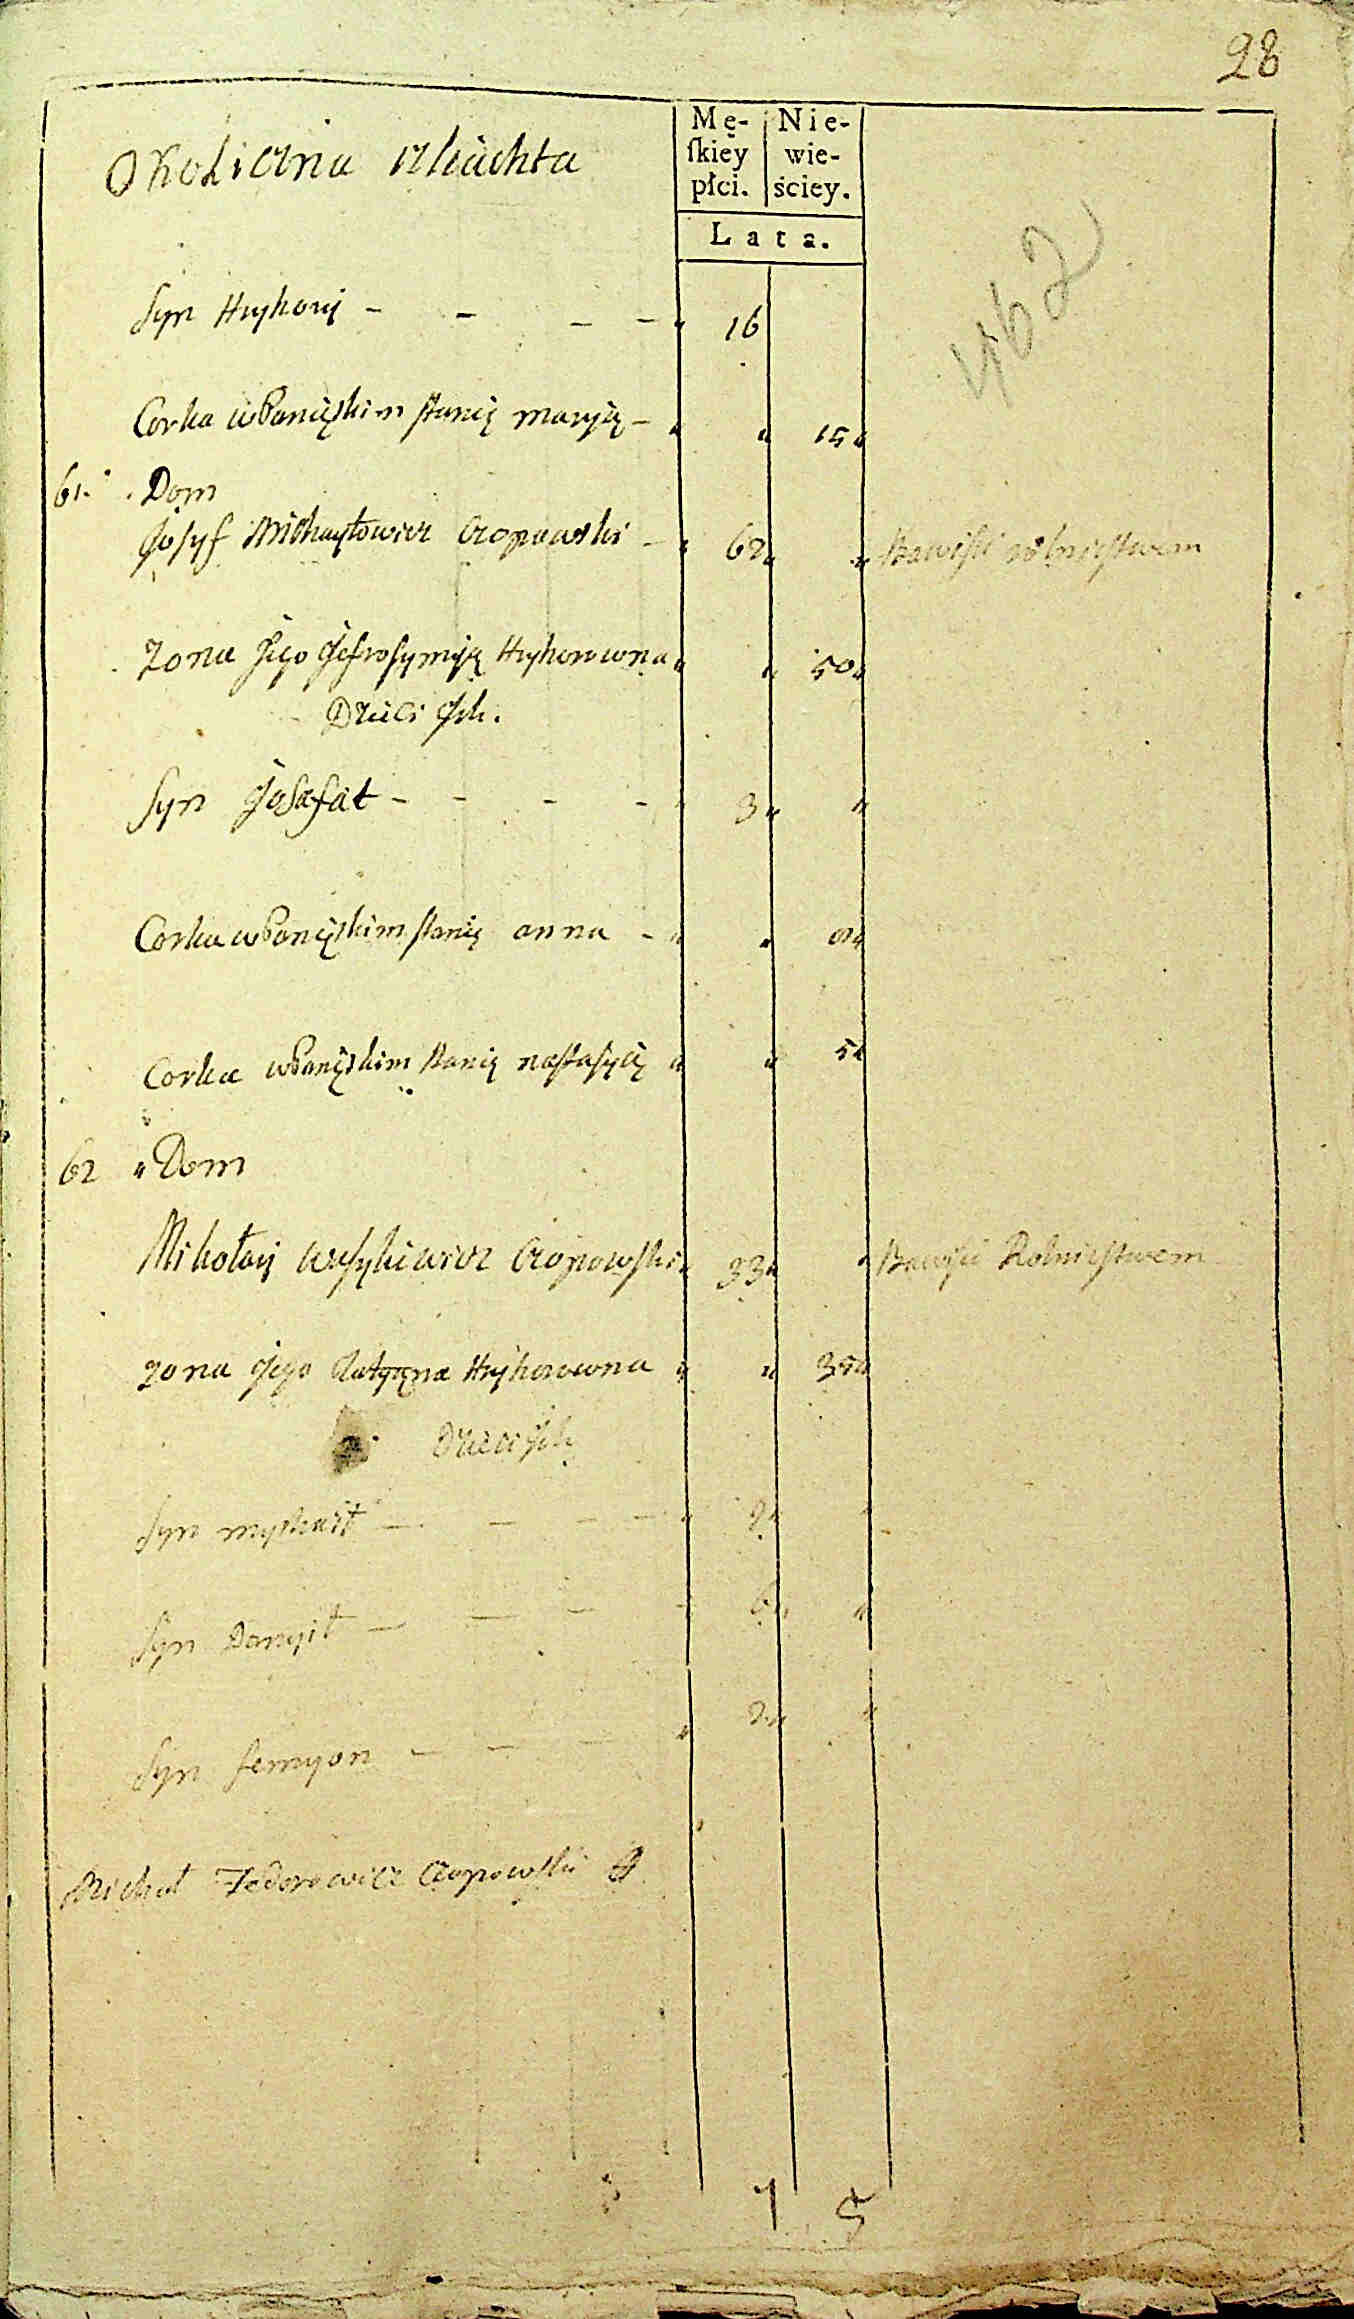 28
Okoliczna szlachta
Mę- Nie-
skiey wie-
płci. ściey.
Lata.
462
Syn Hryhory - - - - " 16
Corka w Panięskim stanię maryię - " " 15 "
61. Dom
Josyf Michayłowicz Czopowski - " 62 " " Bawiśię rolnictwem
Zona Jego Jefrosymiję Hryhorowna " " 50 "
Dzieci Ich.
Syn Josafat - - - - " 3 " "
Corka w Panięskim stanię anna - " "
Corka w Panięskim stanię nastasyię " " 5 "
62 " Dom
Mikołay wasylewicz Czopowski " 33 " " Bawiśię Rolnictwem
zona Jego Hryhorowna " " 35 "
Dzieci Ich
Syn myhaił - - - - " "
Syn Danyił - - - - 6 " "
Syn Semyon - - - " 2 " "
Michał Fedorowicz Czopowski
7 5